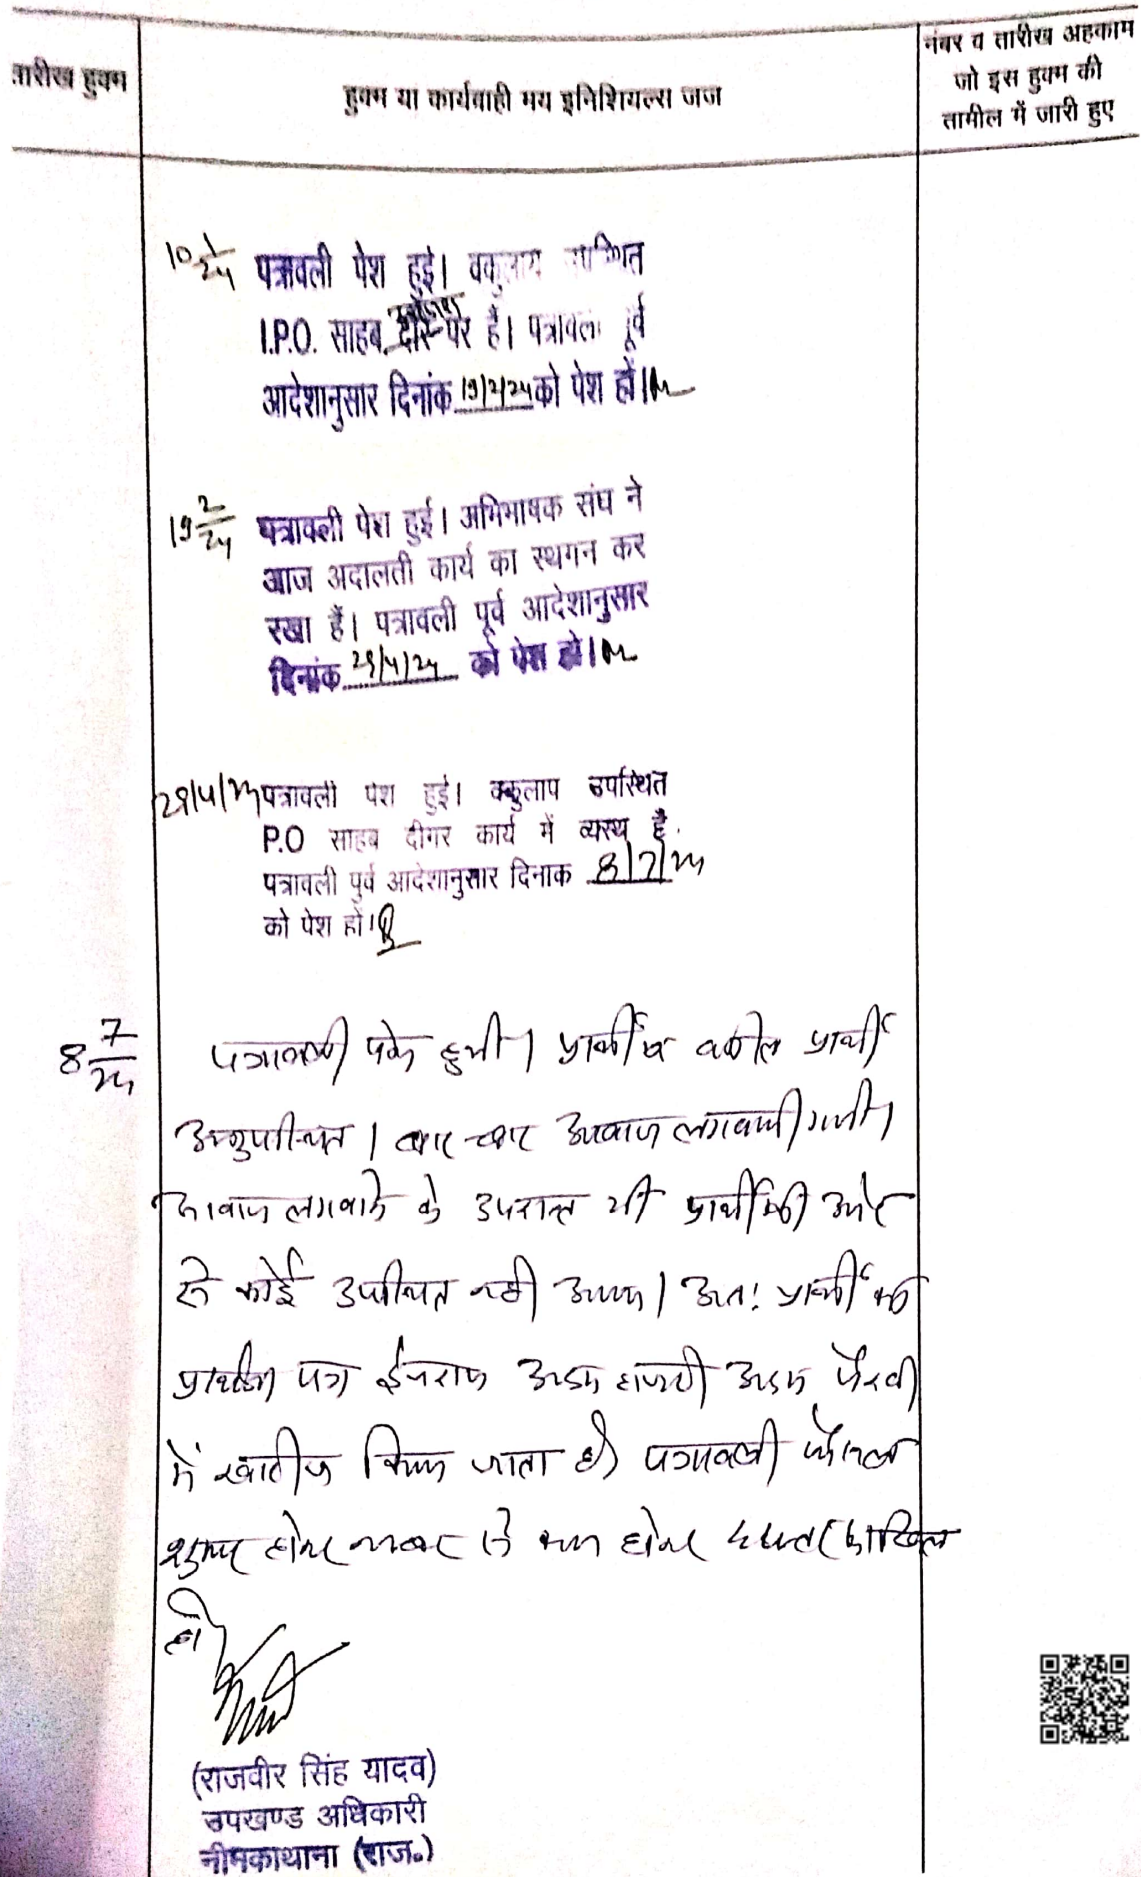 तारीख हुक्म
हुक्म या कार्यवाही मय इनिशियल्स जज
नंबर व तारीख अहकाम
जो इस हुक्म की
तामील में जारी हुए
10 1/24 पत्रावली पेश हुई। वकुलाय उपस्थित
I.P.O. साहब दौरे पर है। पत्रावली पूर्व
आदेशानुसार दिनांक 19/2/24 को पेश हों।
19 2/24 पत्रावली पेश हुई। अभिभाषक संघ ने
आज अदालती कार्य का स्थगन कर
रखा हैं। पत्रावली पूर्व आदेशानुसार
दिनांक 29/4/24 को पेश हो।
29/4/24 पत्रावली पेश हुई। वकुलाप उपस्थित
P.O साहब दीगर कार्य में व्यस्थ है.
पत्रावली पुर्व आदेशानुसार दिनाक 8/7/24
को पेश हों।
8 7/24 पत्रावली पेश हुयी। प्रार्थी व वकील प्रार्थी
अनुपस्थित। बार-बार आवाज लगवायी गयी।
आवाज लगवाने के उपरान्त भी प्रार्थी की ओर
से कोई उपस्थित नही आया। अतः प्रार्थी का
प्रार्थना पत्र ईजराय अदम हाजरी अदम पैरवी
में खारीज किया जाता है। पत्रावली फैसल
शुमार होकर नम्बर से कम होकर दफ्तर दाखिल
हो।
(राजवीर सिंह यादव)
उपखण्ड अधिकारी
नीमकाथाना (राज०)